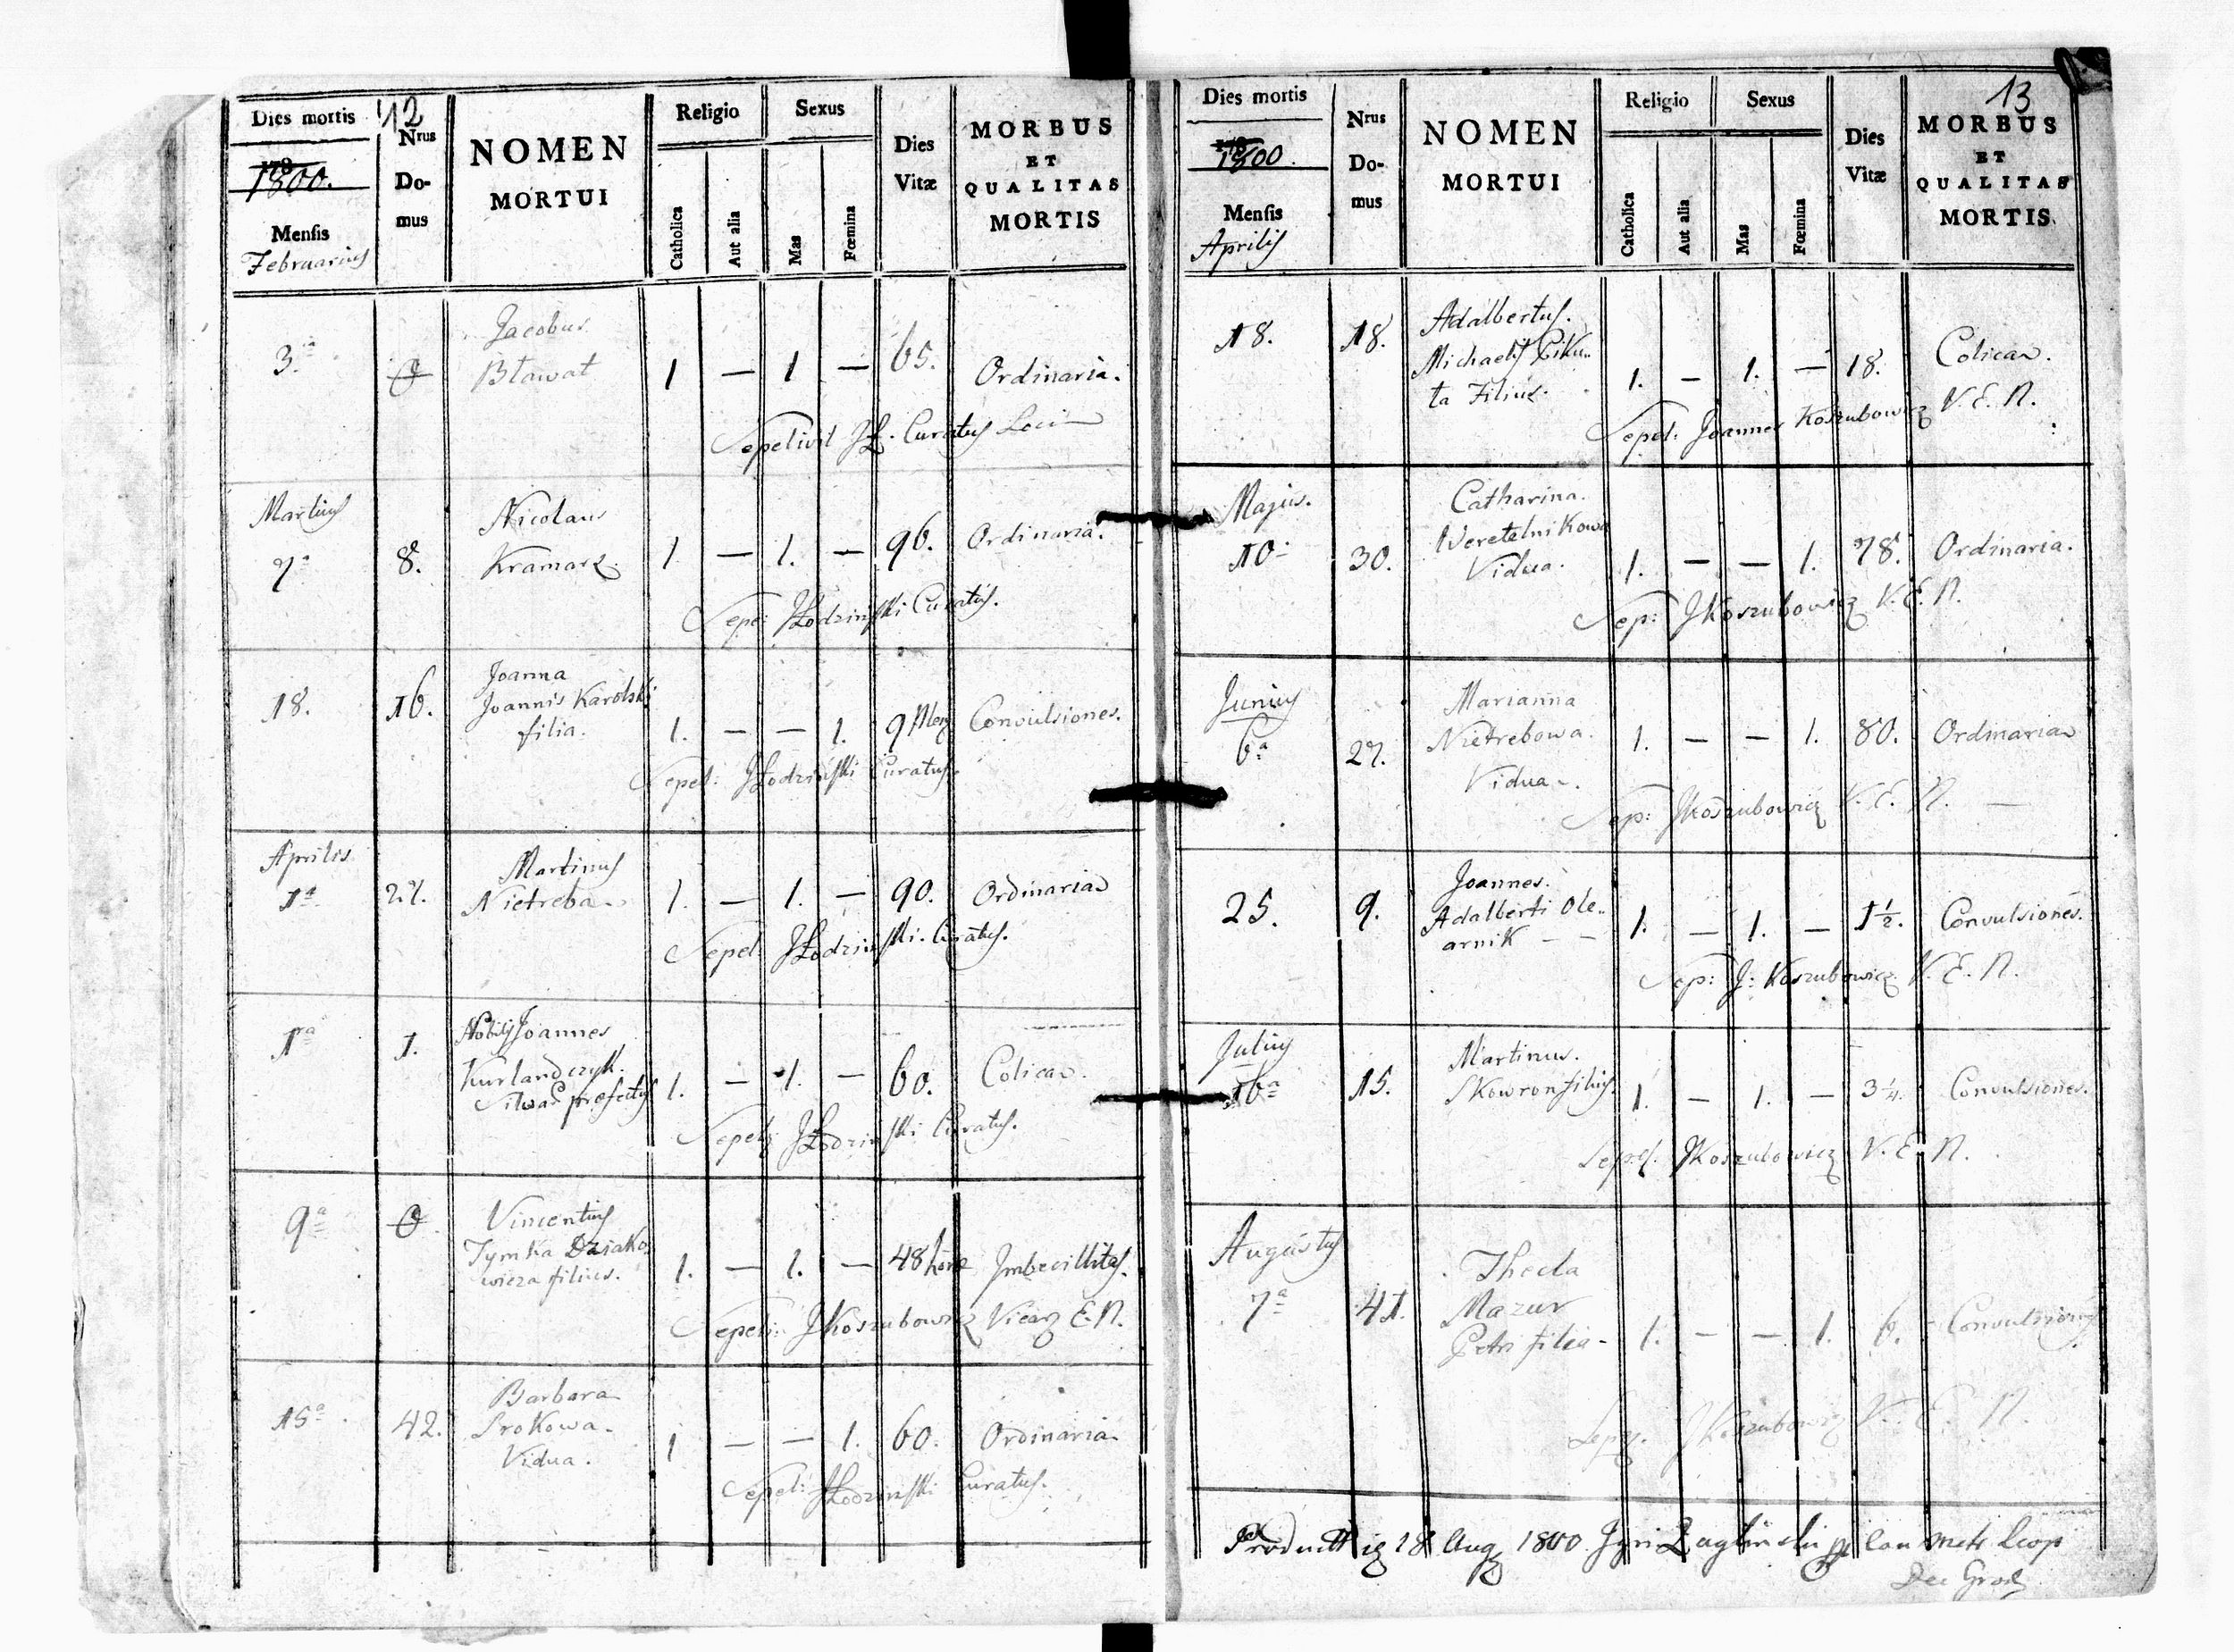 12
Dies mortis
178
1800.
Mensis
Februarius
Nrus
Do-
mus
NOMEN
MORTUI
Religio
Catholica
Aut alia
Sexus
Mas
Fœmina
Dies
Vitæ
MORBUS
ET
QUALITAS
MORTIS
3.ia
Jacobus
Bławat
1 — 1 — 65. Ordinaria.
Sepelivit JŁ. Curatus Loci
Martius
7a 8.
Nicolaus
Kramarz.
1. — 1. — 96. Ordinaria.
Sepe: JŁodzinski Curatus.
18. 16.
Joanna
Joannis Karolski
filia.
1. — — 1. 9 Men Convulsiones.
Sepel: JŁodzinski Curatus.
Aprilis
1a 27.
Martinus
Nietreba
1. — 1. — 90. Ordinaria
Sepel: JŁodzinski Curatus.
1a 1.
Nobilis Joannes
Kurlandczyk.
Silvar prefectus
1. — 1. — 60. Colica.
Sepel: JŁodzinski Curatus.
9a
Vincentius
Tymka Dziako
wicza filius.
1. — 1. — 48 horæ Imbecillitas.
Sepeli: JKoszubowicz Vicar E. N.
15a 42.
Barbara
Srokowa
Vidua.
1 — — 1. 60. Ordinaria
Sepel: JŁodzinski Curatus.
13
Dies mortis
178
1800.
Mensis
Aprilis
Nrus
Do-
mus
NOMEN
MORTUI
Religio
Catholica
Aut alia
Sexus
Mas
Fœmina
Dies
Vitæ
MORBUS
ET
QUALITAS
MORTIS.
18. 18.
Adalbertus.
Michaelis
ta Filius.
1. — 1. — 18. Colica.
Sepel: Joannes Koszubowicz V. E. N.
Majus.
10a 30.
Catharina.
Weretelnikowa
Vidua.
1. — — 1. 78. Ordinaria.
Sep: JKoszubowicz V. E. N.
Junius
6a 27.
Marianna
Nietrebowa.
Vidua.
1. — — 1. 80. Ordinaria
Sep: JKoszubowicz V. E. N. —
25. 9.
Joannes.
Adalberti Ole..
arnik — —
1. — 1. — 1½. Convulsiones.
Sep: J: Koszubowicz V. E. N.
Julius
16a 15.
Martinus.
Skowron filius.
1. — 1. — 3¼. Convulsiones.
Sepel. JKoszubowicz V. E. N.
Augustus
7a 41.
Thecla
Mazur
Petri filia —
1. — — 1. 6. Convulsiones
JKoszubowicz V. E. N.
18 Aug 1800